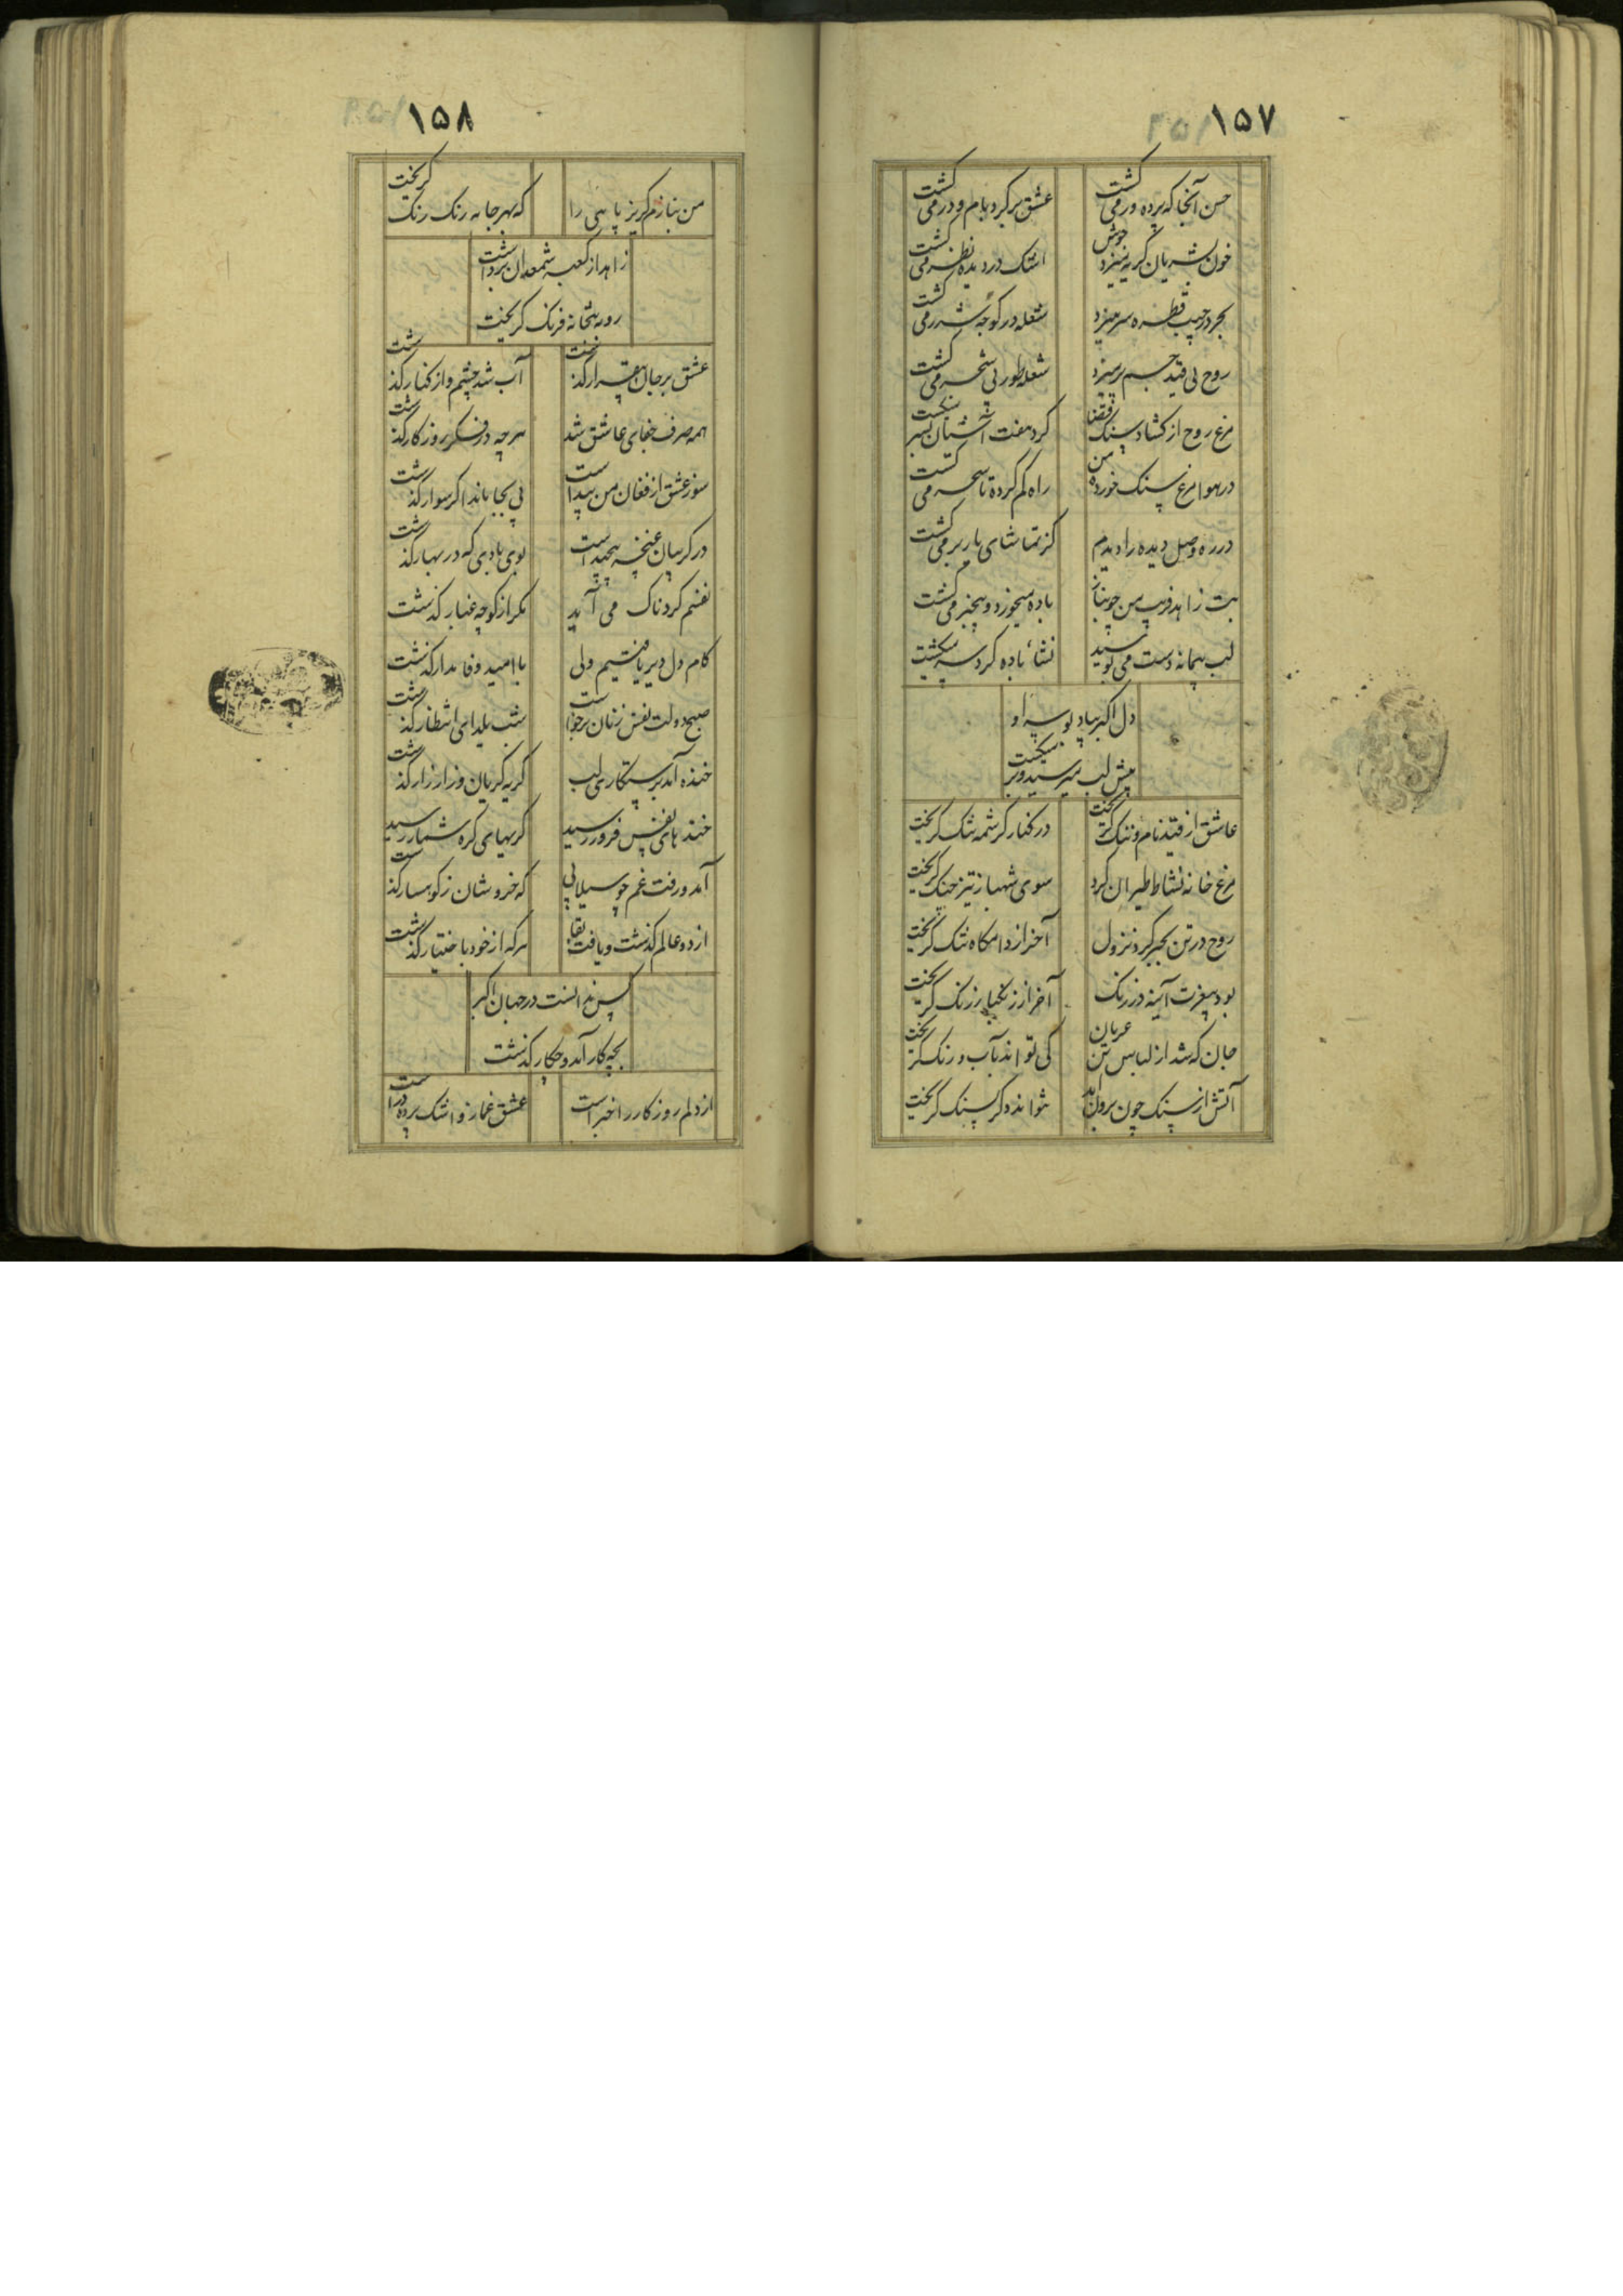 ۱۵۷
حسن آنجا که پرده ور می کشت
عشق بر کرد بام و در می کشت
خون بشریان کریه میزد جوش
اشک در دیده نظر می کشت
بحر در جیب قطره سر میزد
شعله در کوچه شرر می کشت
روح بی قید جسم پر میزد
شعله طور بی شجر می کشت
مرغ روح از کشاد سنک قضا
کرد هفت آشیان بسر میکشت
در هوا مرغ سنک خورده من
راه کم کرده تا سحر می کشت
در ره وصل دیده را دیدم
کز تماشای یار بر می کشت
بت زاهد فریب من چو بناز
باده میخورد و بیخبر می کشت
لب پیمانه دست می بوسید
نشاء باده کرد سر میکشت
دل اکبر بیاد بوسه او
پیش لب میرسید و بر میکشت
عاشق از قید نام و ننک کریخت
در کنار کرشمه تنک کریخت
مرغ خانه نشاط طیران کرد
سوی شهباز تیز چنک کریخت
روح در تن بجبر کرد نزول
آخر از دامکاه تنک کریخت
بود بیغرت آینه در زنک
آخر از زنکبار زنک کریخت
جان که شد از لباس تن عریان
کی تواند بآب و رنک کریخت
آتش از سنک چون برون آمد
نتواند دکر بسنک کریخت
۱۵۸
من بنازم کریز پایی را
که بهر جا به رنک رنک کریخت
زاهد از کعبه شمعدان برداشت
رو به بتخانه فرنک کریخت
عشق بر جان بیقرار کذشت
آب شد چشم و از کنار کذشت
همه صرف جفای عاشق شد
هرچه در فکر روزکار کذشت
سوز عشق از فغان من پیداست
پی بجا ماند اکر سوار کذشت
در کریبان غنچه پیچیداست
بوی بادی که در بهار کذشت
نفسم کردناک می آید
مکر از کوچه غبار کذشت
کام دل دیر یافتیم ولی
با امید وفا مدار کذشت
صبح دولت نفس زنان برخواست
شب یلدای انتظار کذشت
خنده آمد برستکاری لب
کریه کریان و زار زار کذشت
خنده های نفس فرو رسید
کریهای کره شمار رسید
آمد و رفت غم چو سیلابی است
که خروشان ز کوهسار کذشت
از دو عالم کذشت و یافت بقا
هرکه از خود باختیار کذشت
کس ندانست در جهان اکبر
بچه کار آمد و چکار کذشت
از دلم روزکار را خبر است
عشق غماز و اشک پرده در است